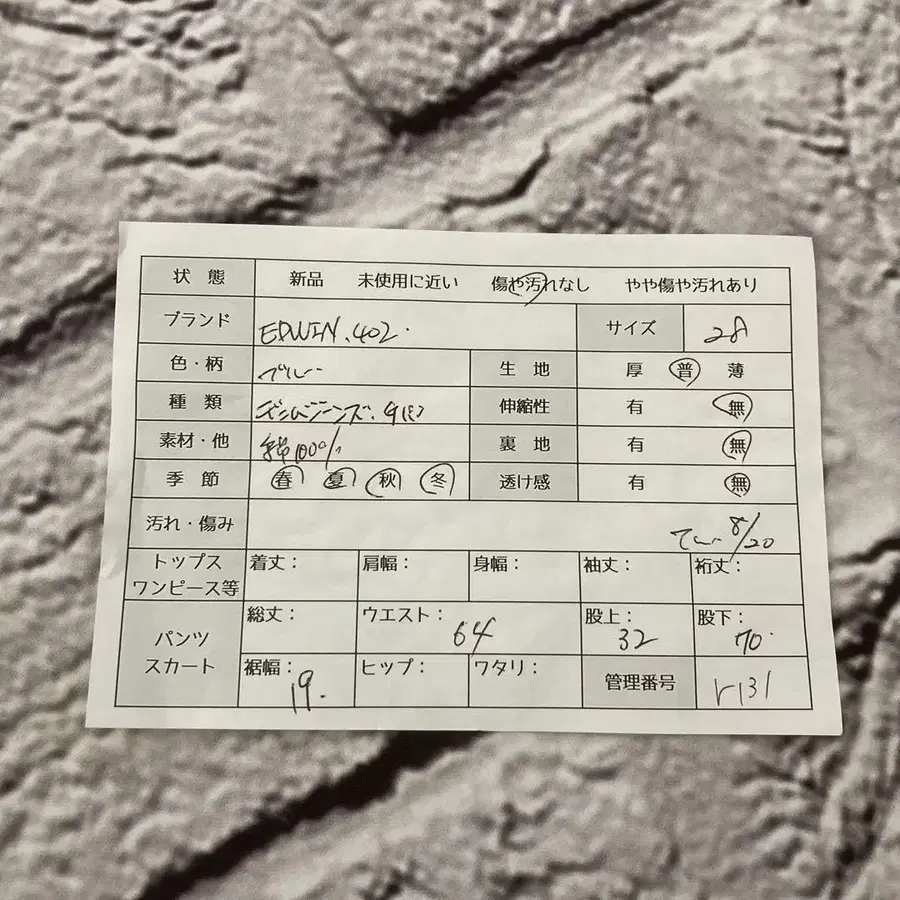 状 態 新品 未使用に近い 傷や汚れなし やや傷や汚れあり
ブランド EDWIN.402. サイズ 28
色・柄 ブルー 生 地 厚 普 薄
種 類 デニムジーンズ. 伸縮性 有 無
素材・他 綿100% 裏 地 有 無
季 節 春 夏 秋 冬 透け感 有 無
汚れ・傷み 8/20
トップス 着丈: 肩幅: 身幅: 袖丈: 裄丈:
ワンピース等
総丈: ウエスト: 64 股上: 32 股下: 70.
パンツ
スカート
裾幅: 19. ヒップ: ワタリ: 管理番号 r131